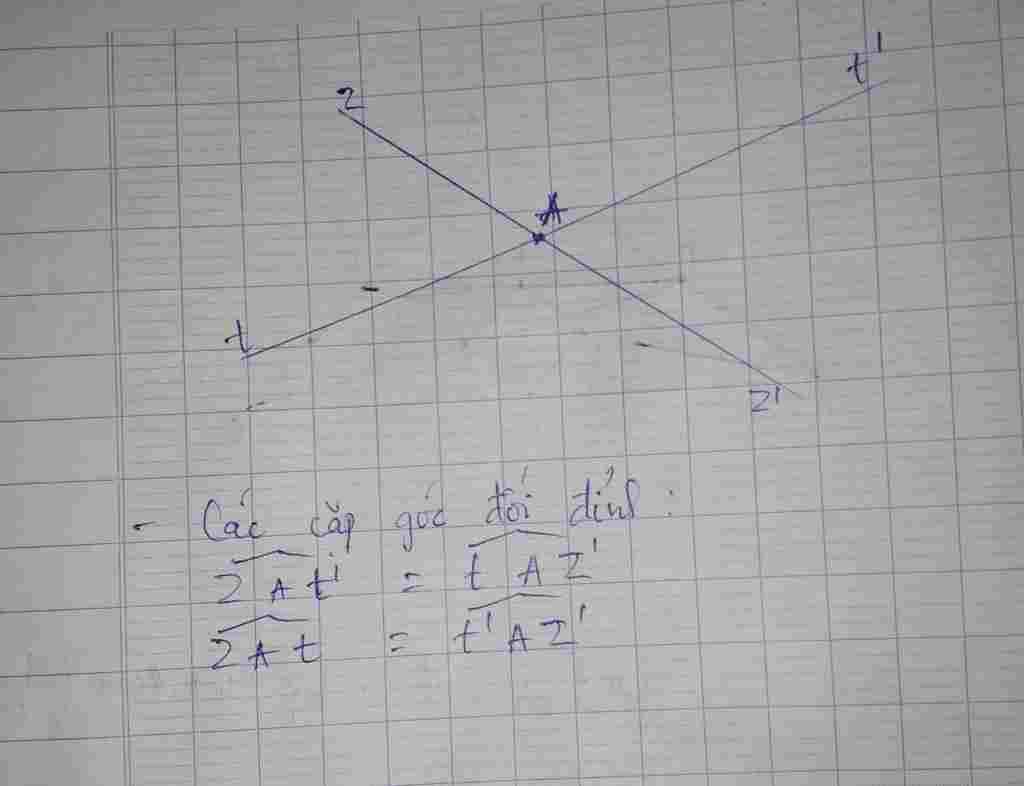 z t'
A
t
z'
- Các cặp góc đối đỉnh :
zAt' = tAz'
zAt = t'Az'